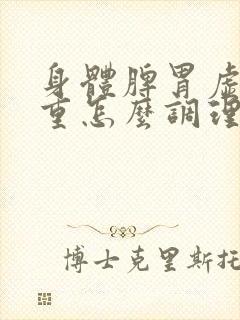 身體脾胃虛
重怎麼調理
博士克里斯托